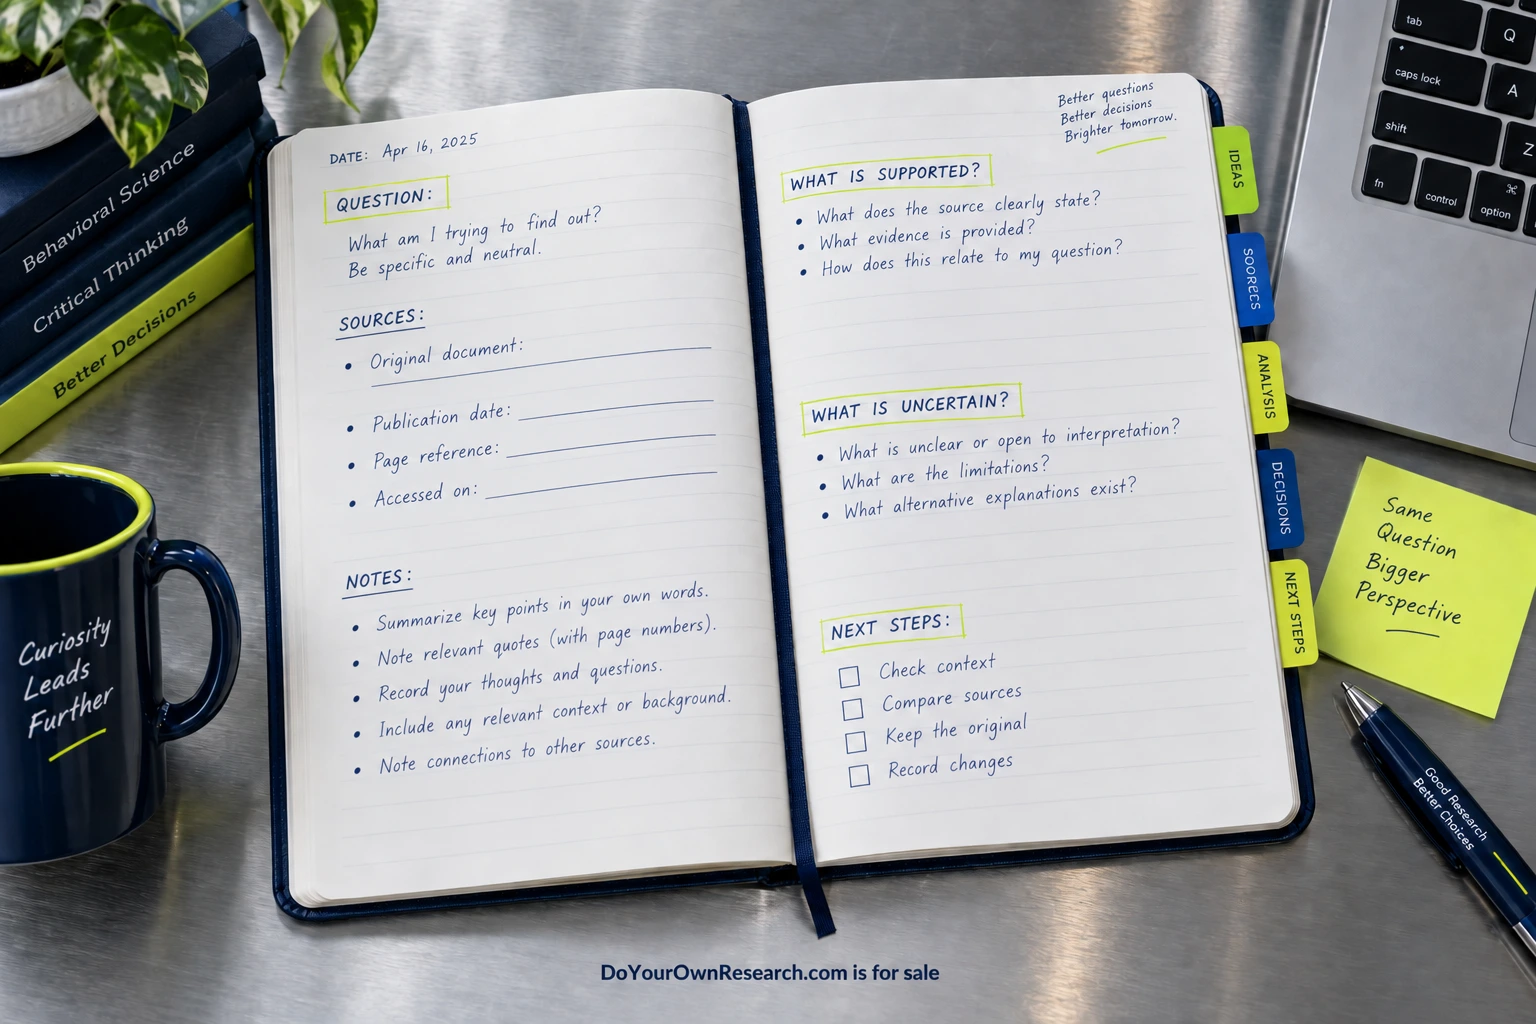 DATE: Apr 16, 2025
QUESTION:
What am I trying to find out?
Be specific and neutral.
SOURCES:
• Original document:
• Publication date:
• Page reference:
• Accessed on:
NOTES:
• Summarize key points in your own words.
• Note relevant quotes (with page numbers).
• Record your thoughts and questions.
• Include any relevant context or background.
• Note connections to other sources.
Better questions
Better decisions
Brighter tomorrow.
WHAT IS SUPPORTED?
• What does the source clearly state?
• What evidence is provided?
• How does this relate to my question?
WHAT IS UNCERTAIN?
• What is unclear or open to interpretation?
• What are the limitations?
• What alternative explanations exist?
NEXT STEPS:
Check context
Compare sources
Keep the original
Record changes
IDEAS
SOORECS
ANALYSIS
DECISIONS
NEXT STEPS
Behavioral Science
Critical Thinking
Better Decisions
Curiosity
Leads
Further
Same
Question
Bigger
Perspective
Good Research
Better Choices
tab
Q
caps lock
A
shift
Z
fn
control
⌘
option
DoYourOwnResearch.com is for sale